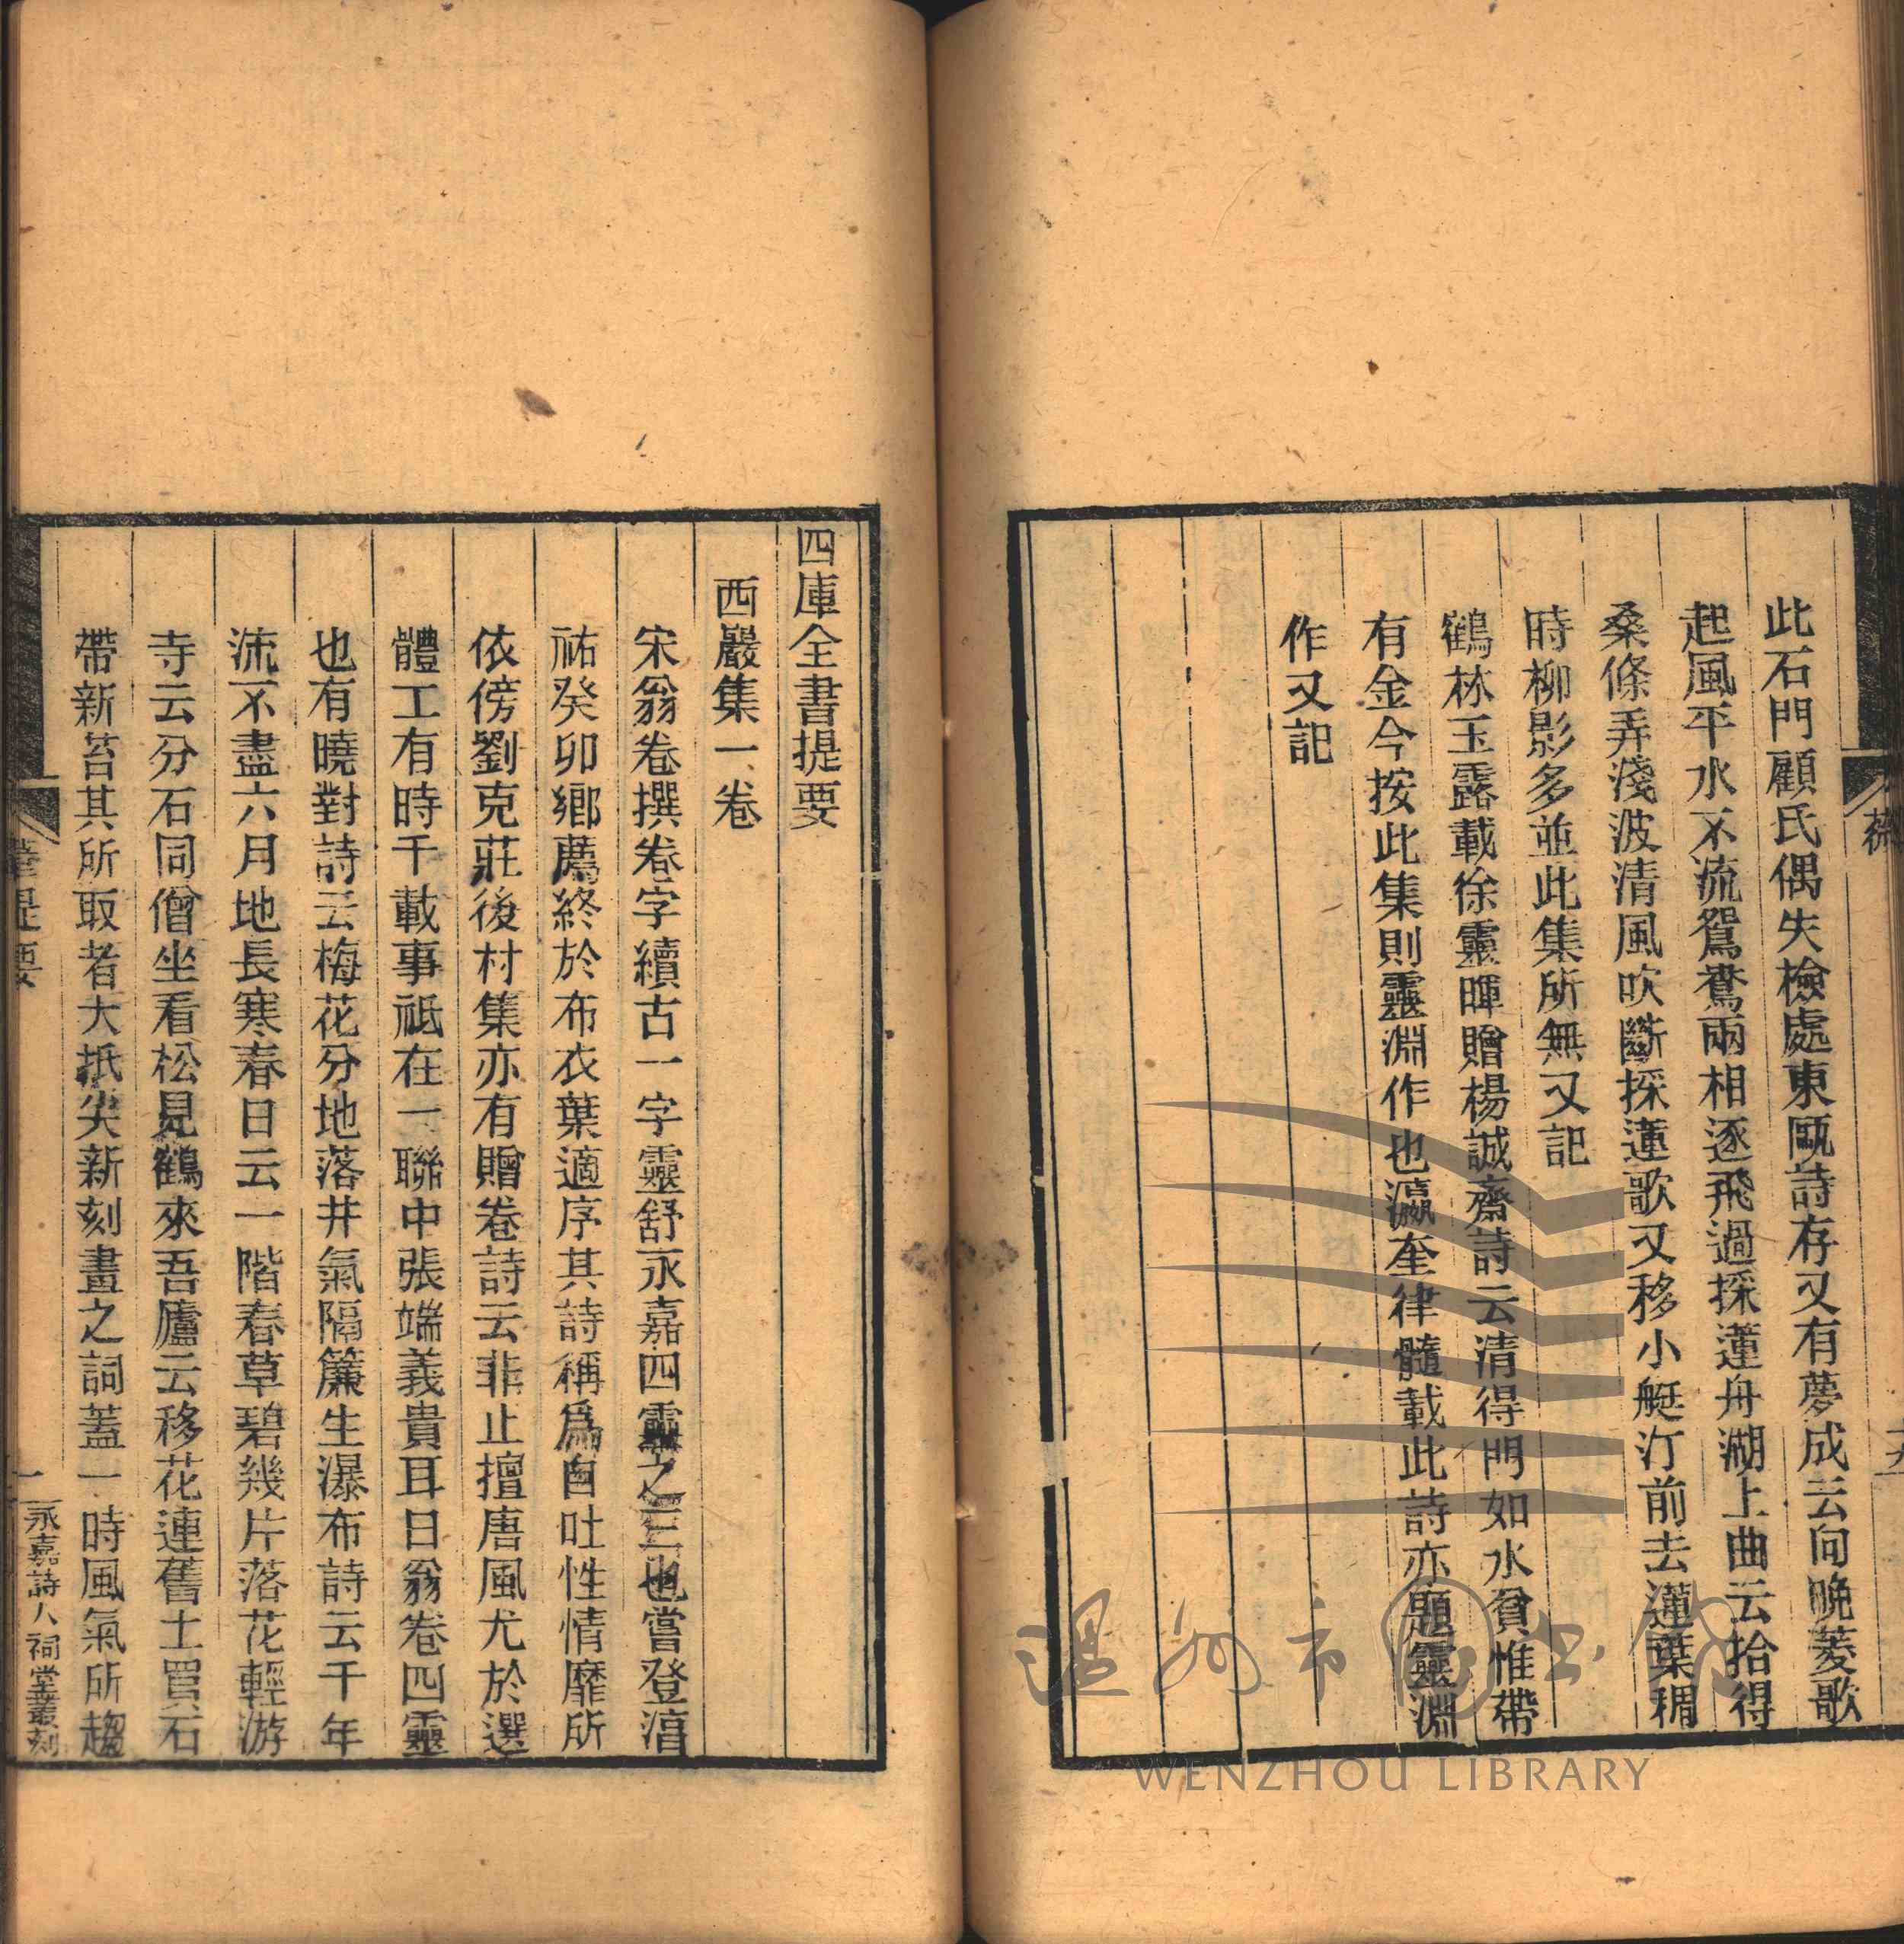 此石門顧氏偶失檢處東甌詩存又有夢成云向晚菱歌
起風平水不流鴛鴦兩相逐飛過採蓮舟湖上曲云拾得
桑條弄淺波清風吹斷採蓮歌又移小艇汀前去蓮葉稠
時柳影多並此集所無又記
鶴林玉露載徐靈暉贈楊誠齋詩云清得門如水貧惟帶
有金今按此集則靈淵作也瀛奎律髓載此詩亦題靈淵
作又記
四庫全書提要
西巖集一卷
宋翁卷撰卷字續古一字靈舒永嘉四靈之三也嘗登淳
祐癸卯鄉薦終於布衣葉適序其詩稱爲自吐性情靡所
依傍劉克莊後村集亦有贈卷詩云非止擅唐風尤於選
體工有時千載事祗在一聯中張端義貴耳曰翁卷四靈
也有曉對詩云梅花分地落井氣隔簾生瀑布詩云千年
流不盡六月地長寒春日云一階春草碧幾片落花輕游
寺云分石同僧坐看松見鶴來吾廬云移花連舊土買石
帶新苔其所取者大抵尖新刻畫之詞蓋一時風氣所趨
提要
一
永嘉詩人祠堂叢刻
溫州市图书馆
WENZHOU LIBRARY